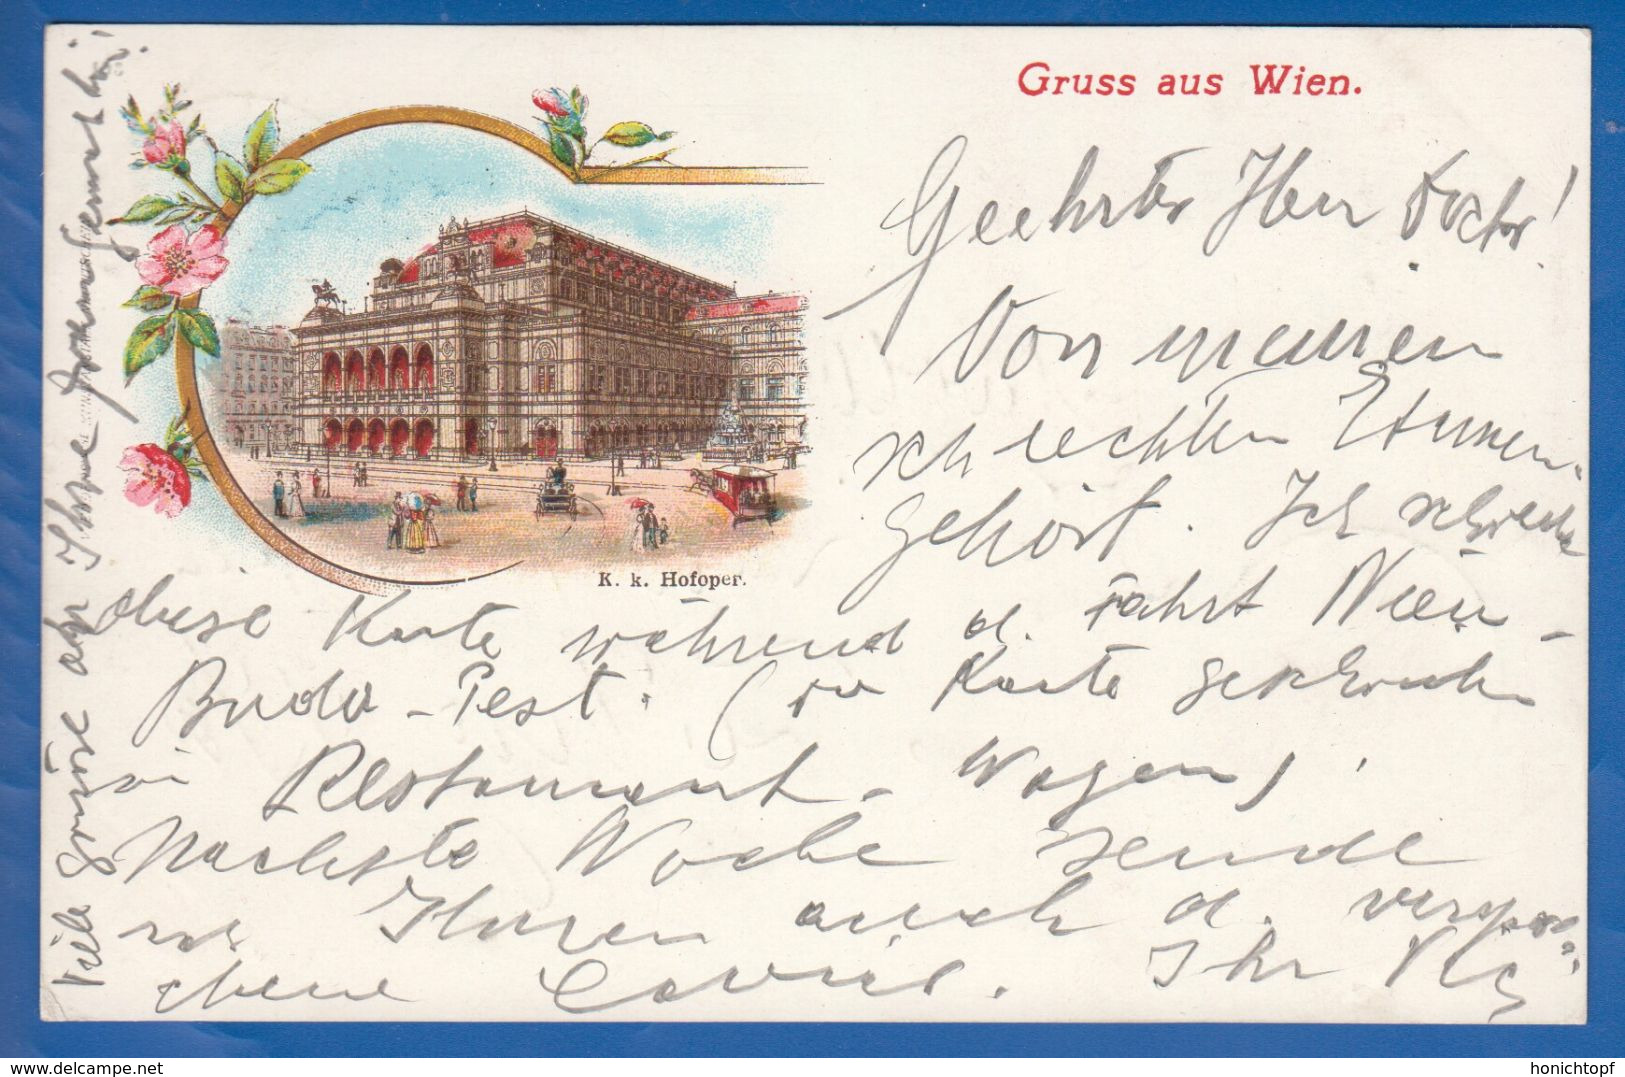 Gruss aus Wien.
Geehrter Herr Doctor!
Von meinen
schlechten Stimmen
gehört. Ich schreibe
K. k. Hofoper.
diese Karte während d. Fahrt Wien-
Buda-Pest. (die Karte geschrieben
im Restaurant-Wagen)!
Nächste Woche sende
ich Ihnen auch d. verspro-
chene Couvert. Ihr
Viele Grüsse an Ihre Frau Gemahlin!
www.delcampe.net
honichtopf